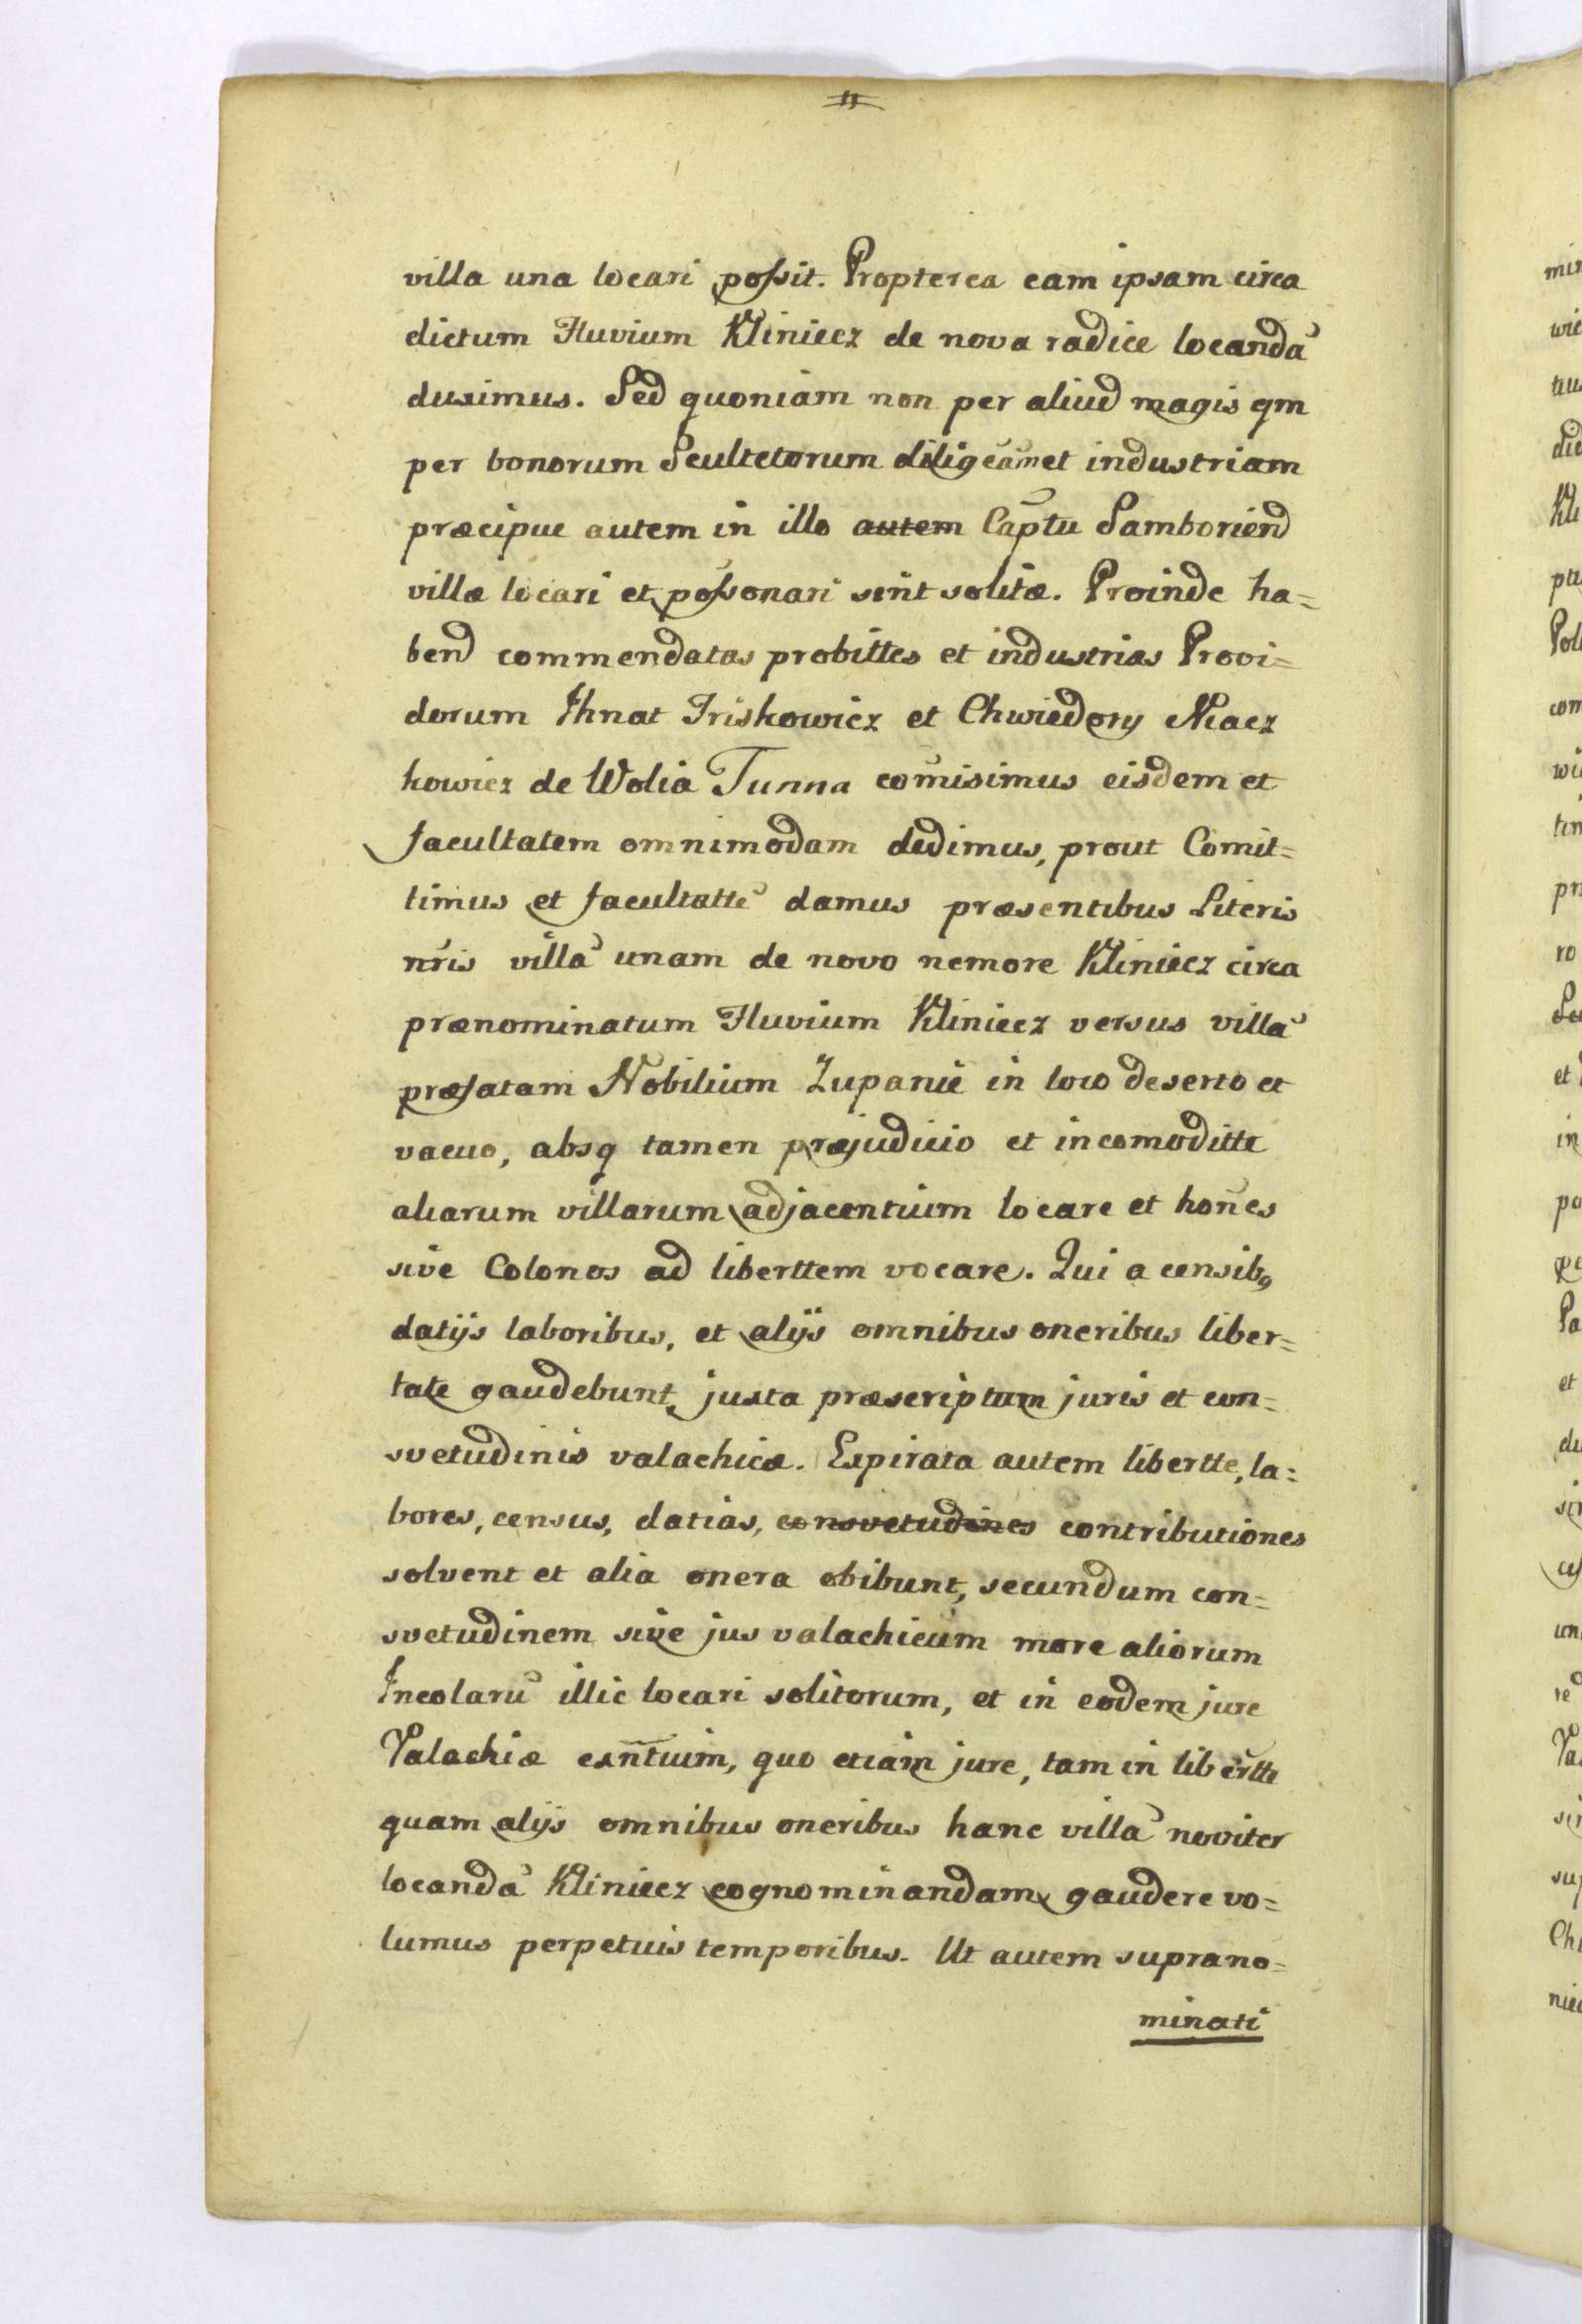 villa una locari possit. Propterea eam ipsam circa
dictum Fluvium Kliniecz de nova radice locandã
duximus. Sed quoniam non per aliud magis qm
per bonorum Scultetorum diligẽam et industriam
præcipue autem in illo autem Capt̃u Samborien̄d
villæ locari et possonari sint solitæ. Proinde ha=
bend commendatas probittes et industrias Provi=
dorum Ihnat Iriskowicz et Chwiedory Macz
kowicz de Wolia Tunna com̃isimus eisdem et
facultatem omnimodam dedimus, prout Comit=
timus et facultattẽ damus præsentibus Literis
nr̃is villã unam de novo nemore Kliniecz circa
prænominatum Fluvium Kliniecz versus villã
præfatam Nobilium Zupanie in loco deserto et
vacuo, absq tamen præjudicio et incomoditte
aliarum villarum adjacentium locare et hom̃es
sive Colonos ad liberttem vocare. Qui a censibq
datijs laboribus, et alijs omnibus oneribus liber=
tate gaudebunt, juxta præscriptum juris et con=
svetudinis valachicæ. Expirata autem libertte, la=
bores, census, datias, consvetudines contributiones
solvent et alia onera obibunt, secundum con=
svetudinem sive jus valachicum more aliorum
Incolarũ illic locari solitorum, et in eodem jure
Valachiæ exñtium, quo etiam jure, tam in libẽrtte
quam alijs omnibus oneribus hanc villã noviter
locandã Kliniecz cognominandam gaudere vo=
lumus perpetuis temporibus. Ut autem suprano=
minati